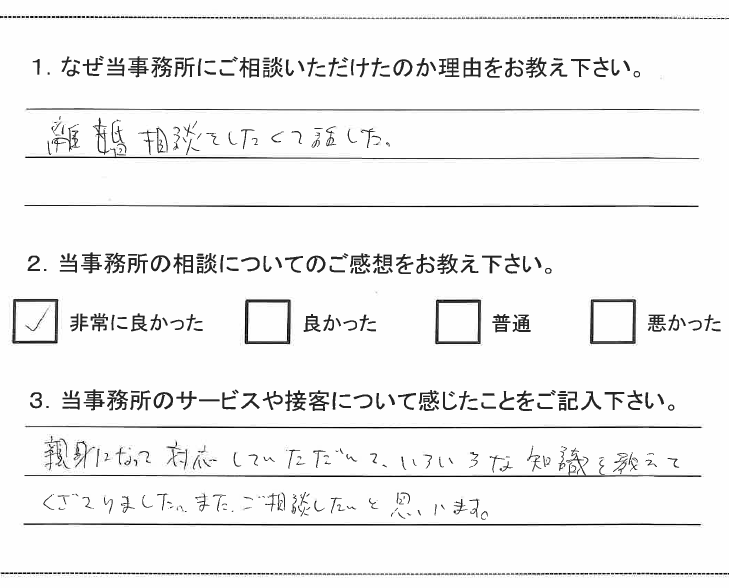 1. なぜ当事務所にご相談いただけたのか理由をお教え下さい。
離婚相談をしたくて話した。
2. 当事務所の相談についてのご感想をお教え下さい。
✓ 非常に良かった 良かった 普通 悪かった
3. 当事務所のサービスや接客について感じたことをご記入下さい。
親身になって対応していただいて、いろいろな知識を教えて
くださりました。また、ご相談したいと思います。